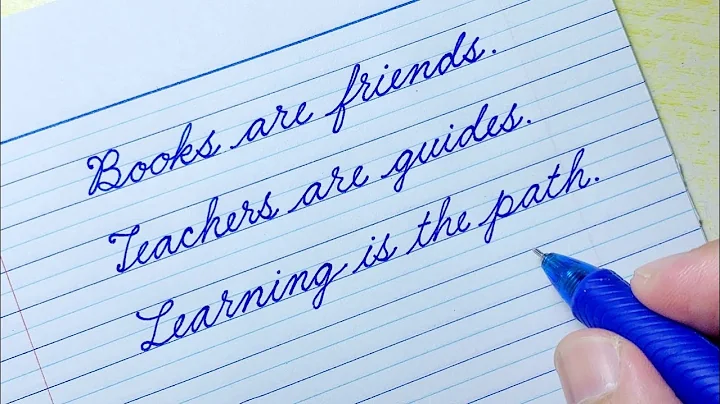 Books are friends.
Teachers are guides.
Learning is the path.